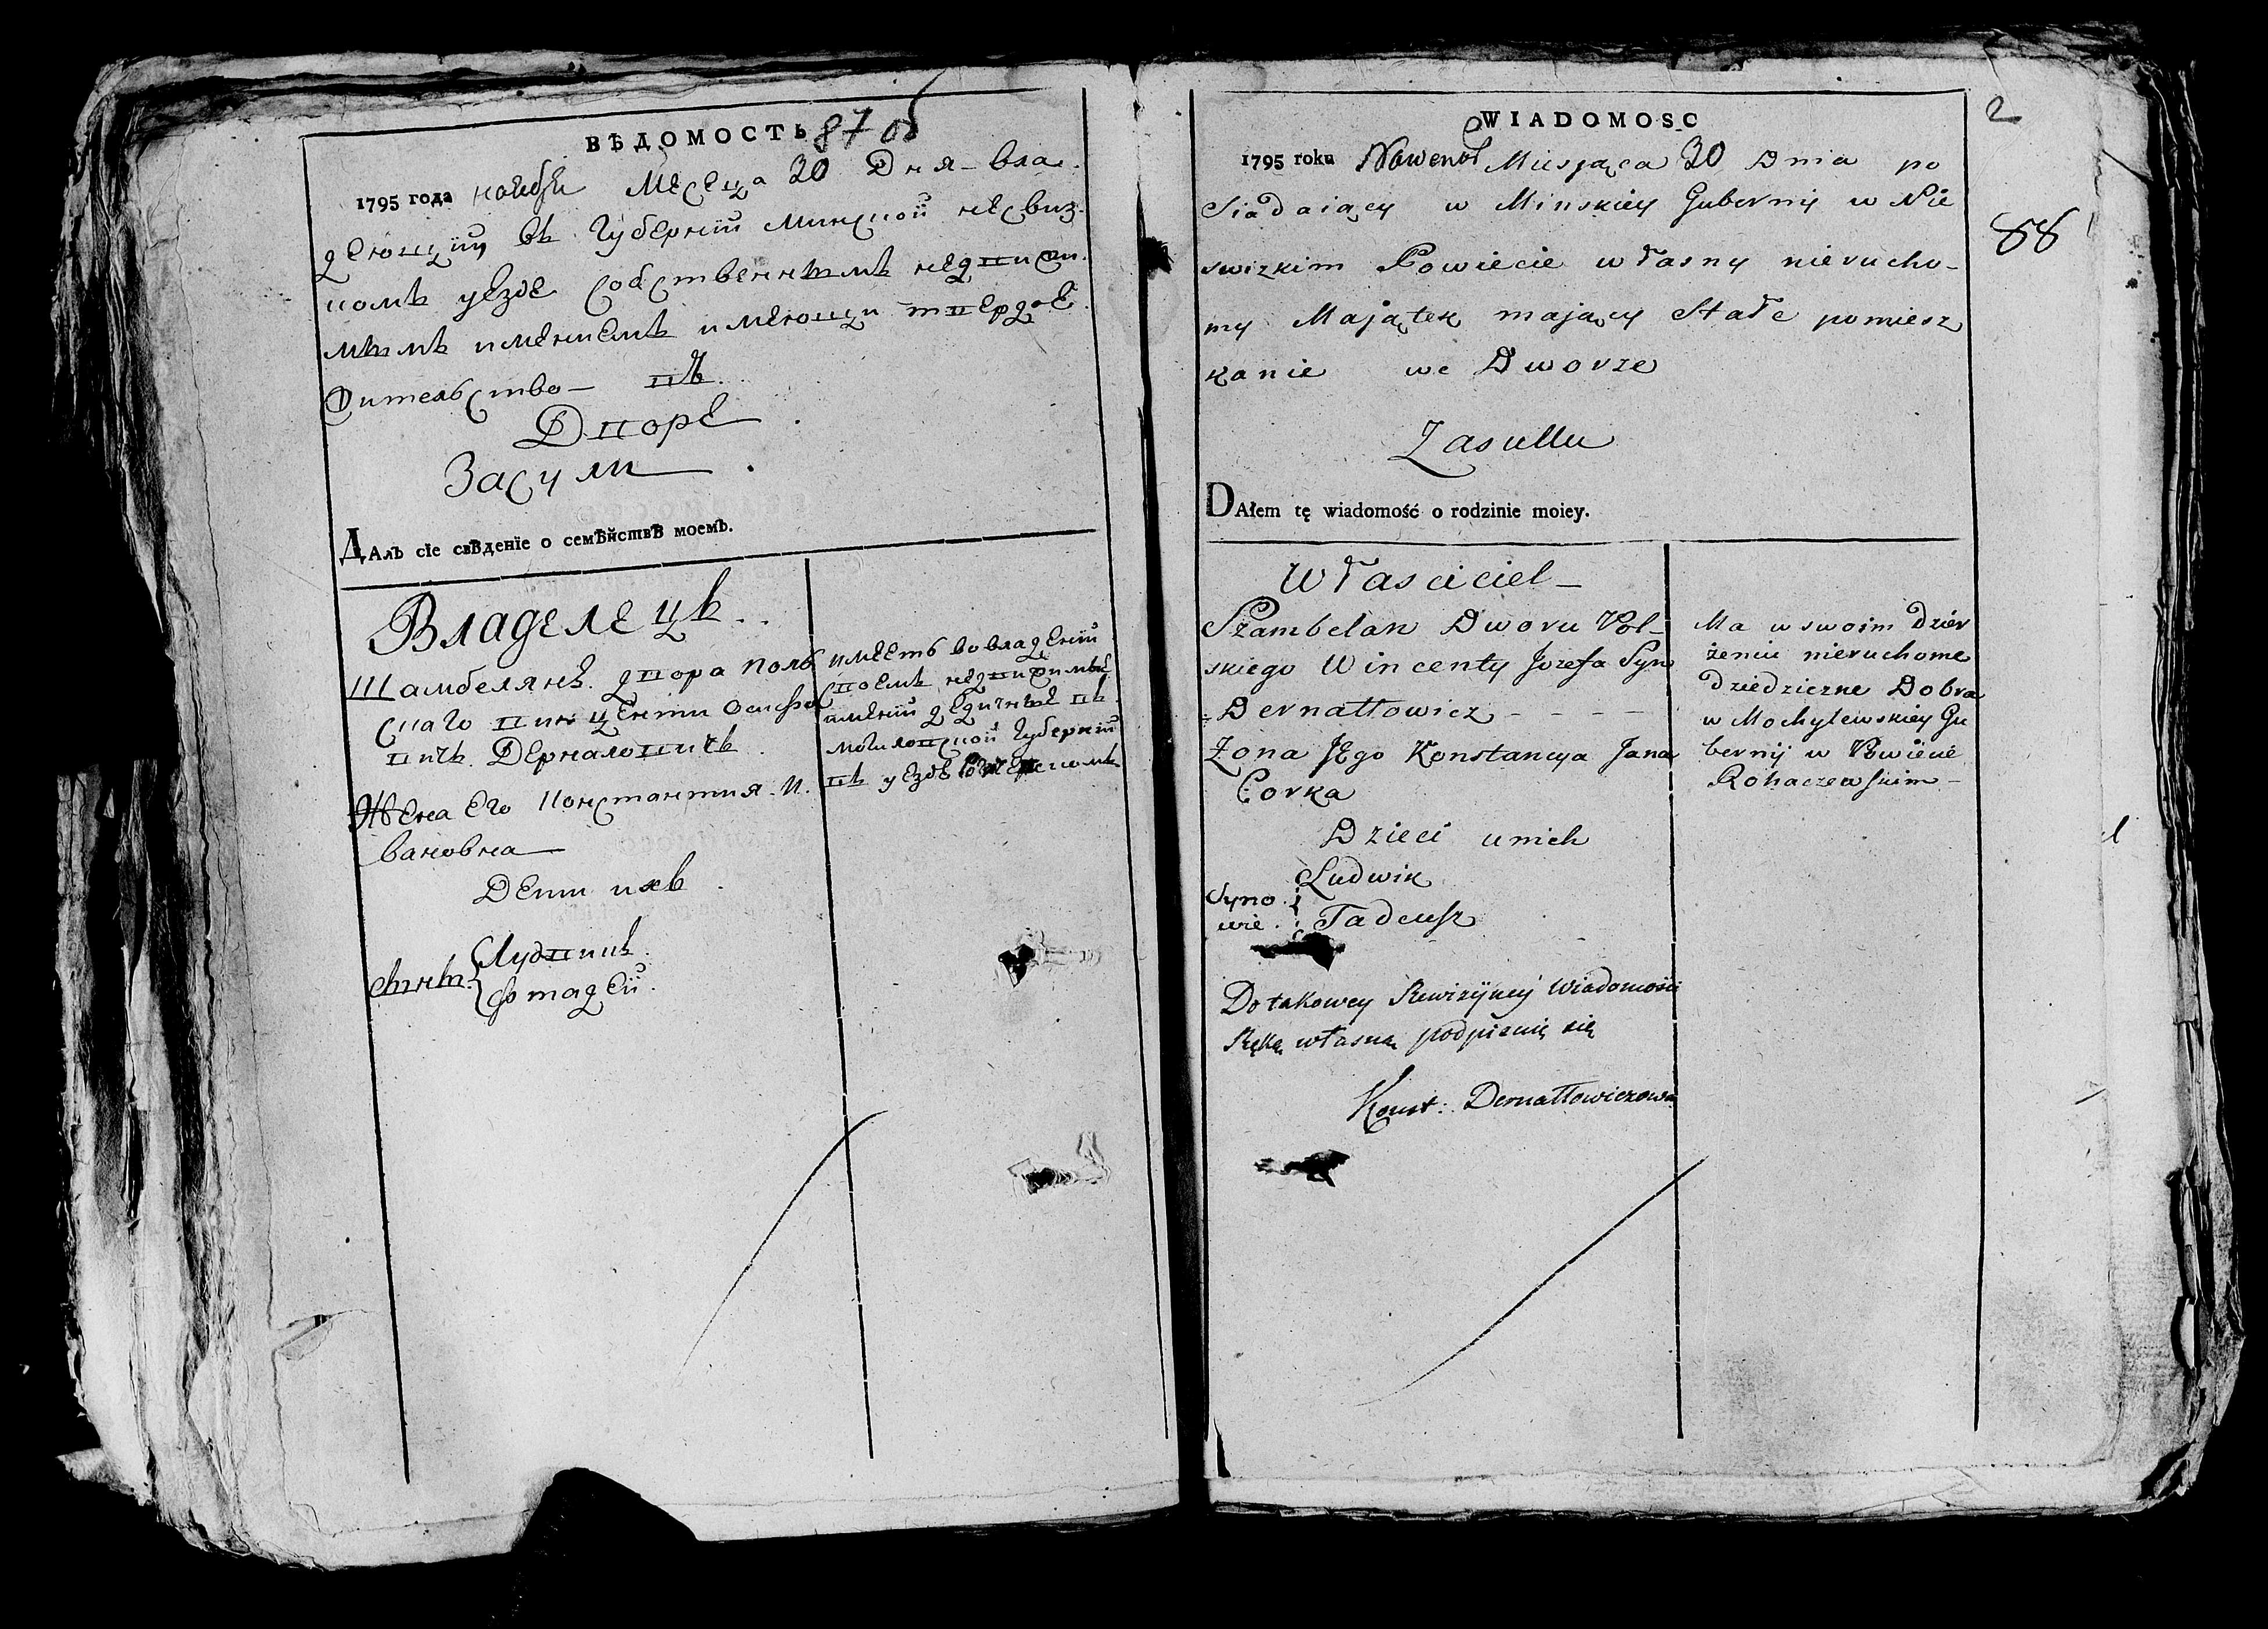 ВѢДОМОСТЬ 87 об
1795 года ноября Месеца 30 Дня - вла
деющий въ Губернии Минской несвиз
комъ уезде собственнымъ недвижи
мымъ имениемъ имеющи твердое
жительство - въ
Дворе
Засули
ДАлъ сїе свѣденїе о семѣйствѣ моемъ.
Владелецъ
Шамбелянъ двора поль
скаго винценти осифо
вичъ Дерналовичъ
Жена Его Константия И
вановна
Дети ихъ
сыны
Лудвикъ
фотадей
имеетъ во владении
своемъ недвижимые
имении дедичные въ
могилевской Губернии
въ уезде
WIADOMOSC
2
1795 roku Nowemb Miesjąca 30 Dnia po
88
siadaiący w Minskiey Gubernij w Nie
swizkim Powiecie własny nierucho-
my Majątek maiący Stałe pomiesz
kanie we Dworze
Zasullu
DAłem tę wiadomość o rodzinie moiey.
Własciciel -
Szambelan Dworu Pol-
skiego Wincenty Jozefa Syn
Dernałłowicz - - - -
Zona JEgo Konstancya Jana
Corka
Dzieci u nich
Syno
wie
Ludwik
Tadeusz
Do takowey Rewizyiney Wiadomości
Ręką własną podpisuię się
Konst: Dernałłowiczowa
Ma w swoim Dzier
żeniu nieruchome
Dziedziczne Dobra
w Mochylewskiey Gu
bernij w Powiecie
Rohaczewskim -